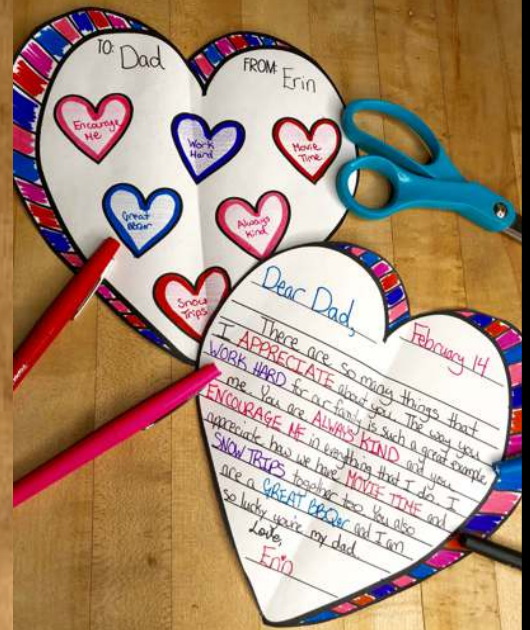 TO: Dad
FROM: Erin
Encourage
Me
Work
Hard
Movie
Time
Great
BBQer
Always
Kind
Snow
Trips
Dear Dad,
February 14
There are so many things that
I APPRECIATE about you. The way you
WORK HARD for our family is such a great example
me. You are ALWAYS KIND and you
ENCOURAGE ME in everything that I do. I
appreciate how we have MOVIE TIME and
SNOW TRIPS together too. You also
are a GREAT BBQer and I am
so lucky you're my dad.
Love,
Erin